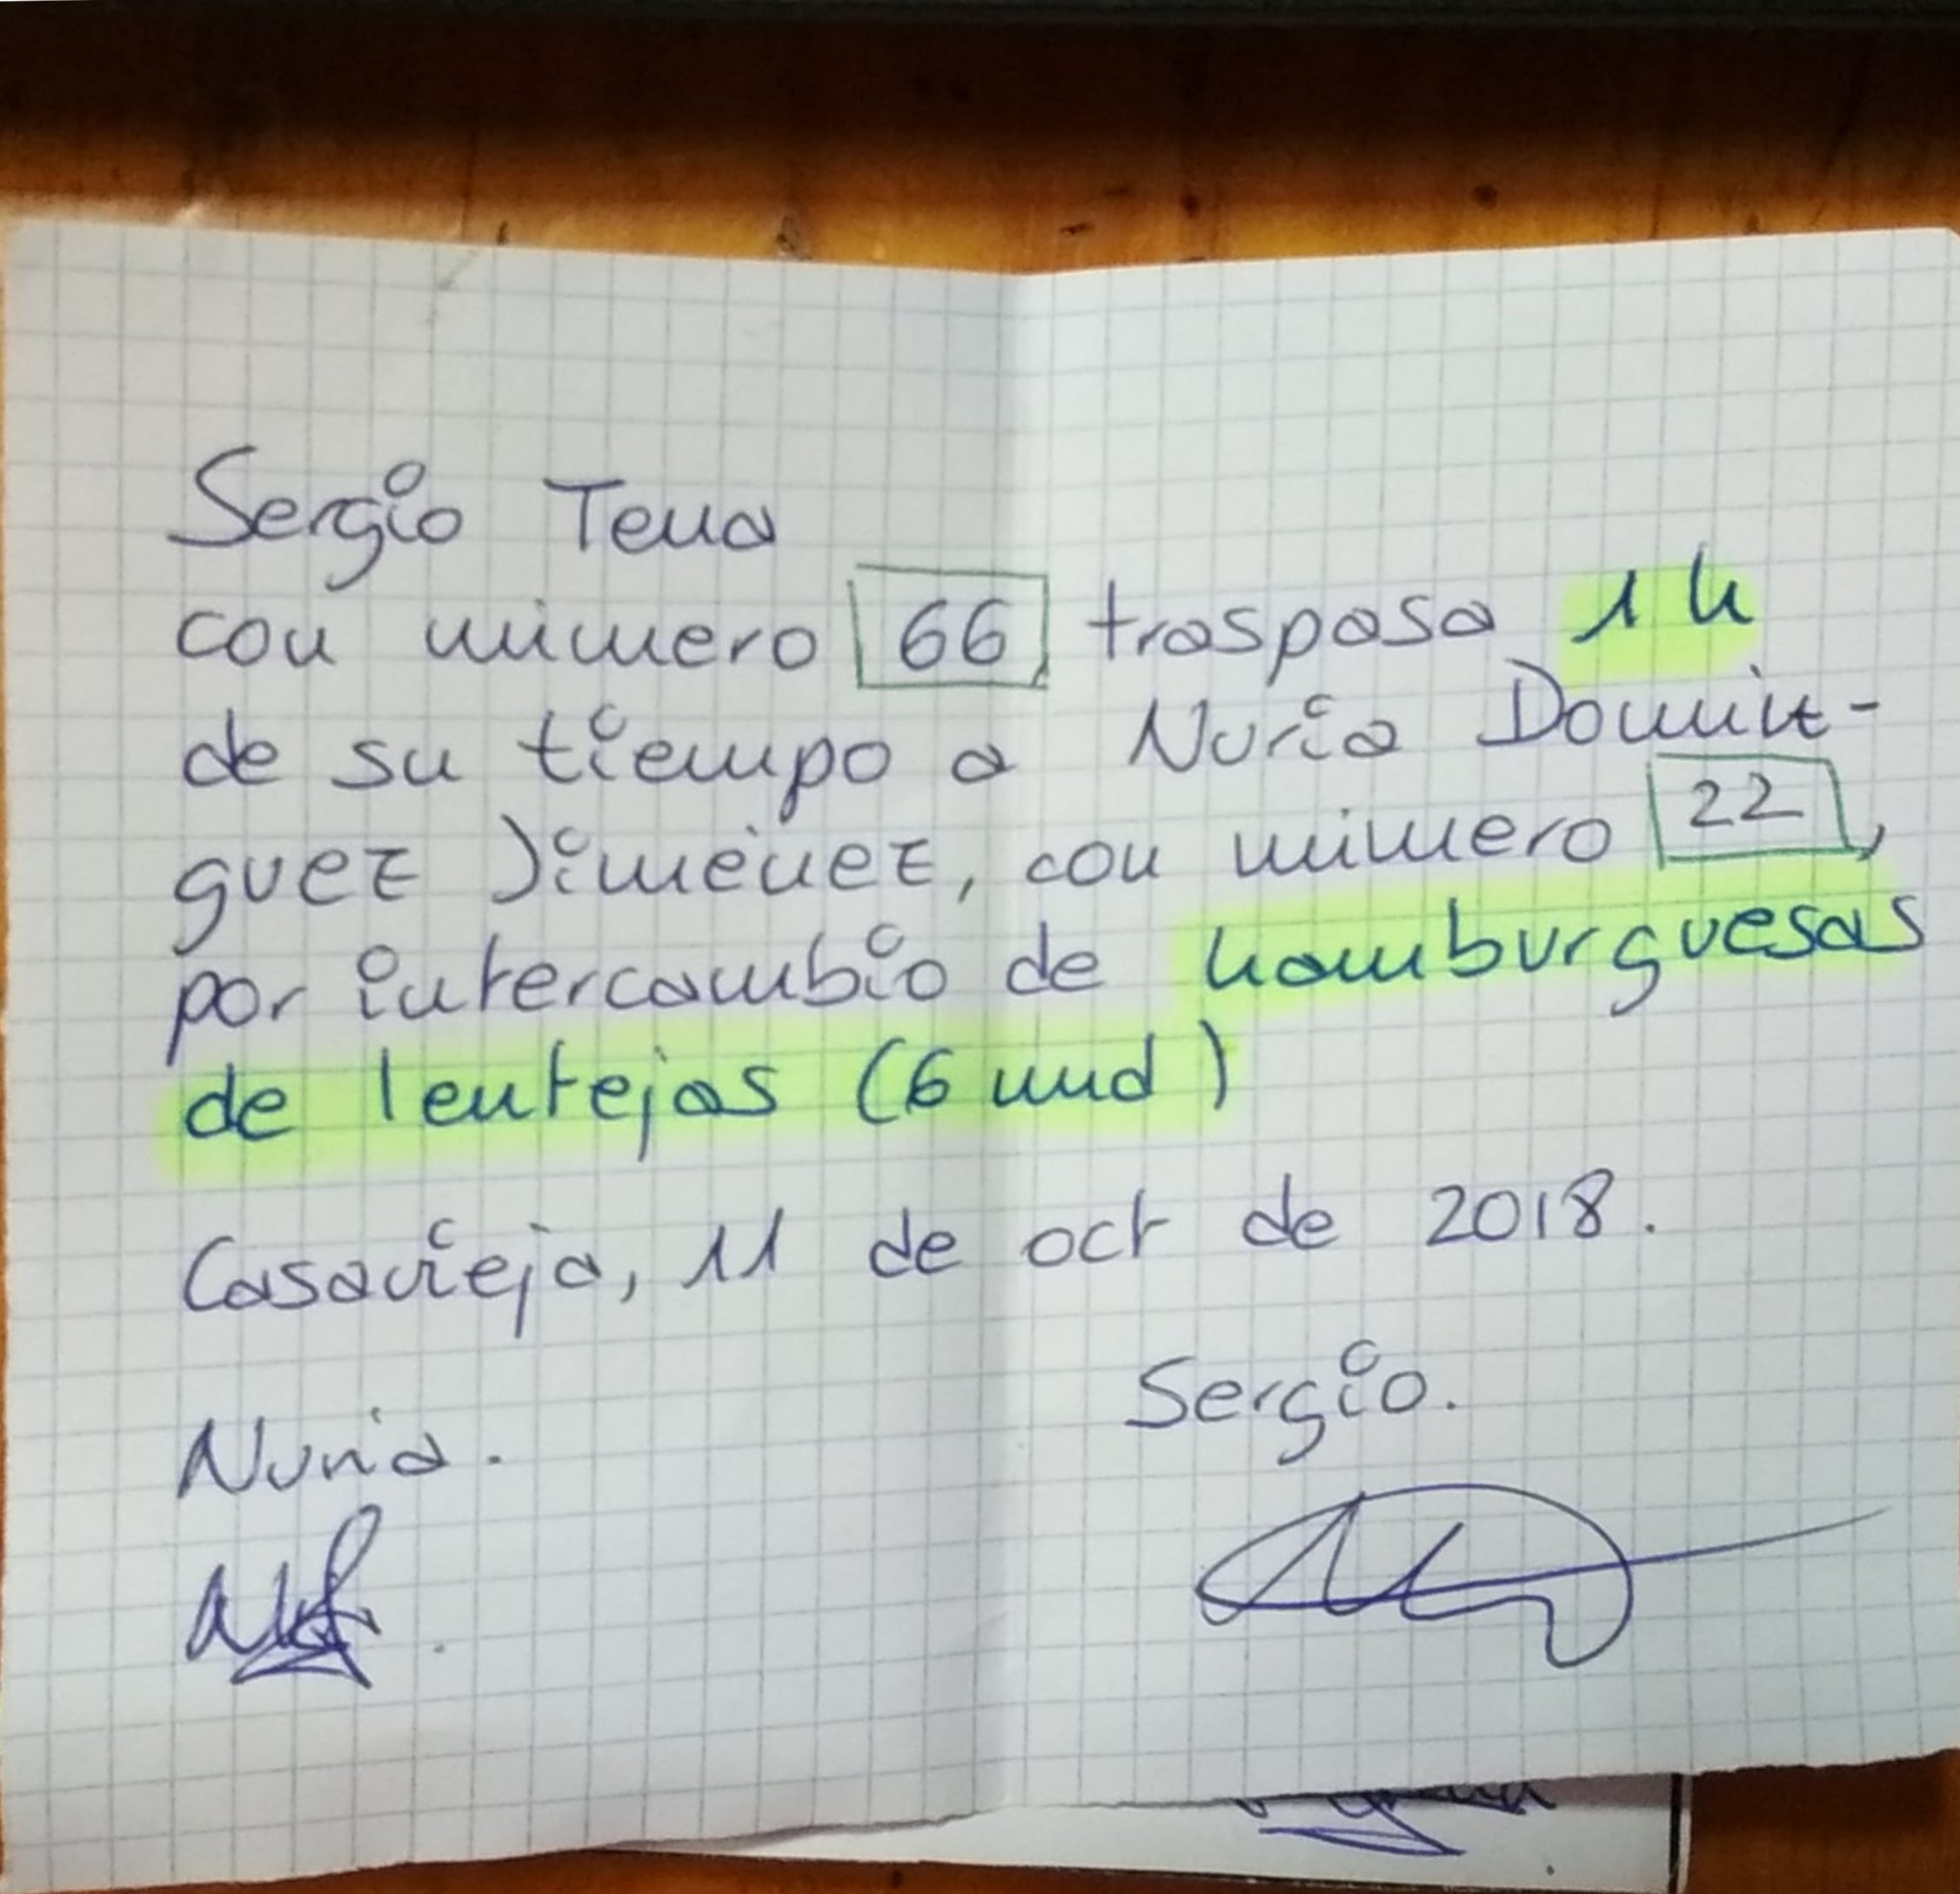 Sergio Tena
con número 66 traspasa 1 h
de su tiempo a Nuria Domín-
guez Jiménez, con número 22,
por intercambio de hamburguesas
de lentejas (6 und)
Casavieja, 11 de oct de 2018.
Sergio.
Nuria.